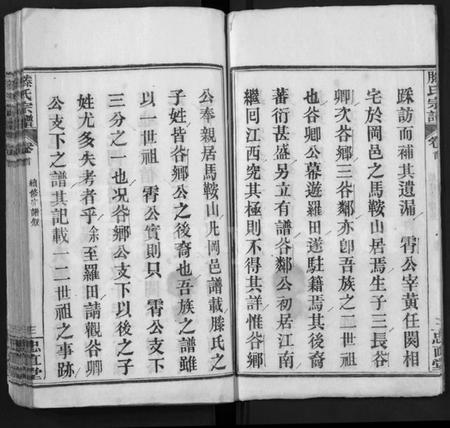 滕氏宗譜
卷首
踩訪而補其遺漏　霄公宰黃任閱相
宅於岡邑之馬鞍山居焉生子三長谷
卿次谷鄉三谷鄰亦卽吾族之二世祖
也谷卿公幕遊羅田遂駐籍焉其後裔
蕃衍甚盛另立有譜谷鄰公初居江南
繼回江西究其極則不得其詳惟谷鄉
公奉親居馬鞍山凡岡邑譜載滕氏之
子姓皆谷鄉公之後裔也吾族之譜雖
以一世祖　霄公實則只　霄公支下
三分之一也况谷鄉公支下以後之子
姓尤多失考者乎余至羅田請觀谷卿
公支下之譜其記載一二世祖之事跡
滕氏宗譜
卷首
續修宗譜敘
三
忠直堂